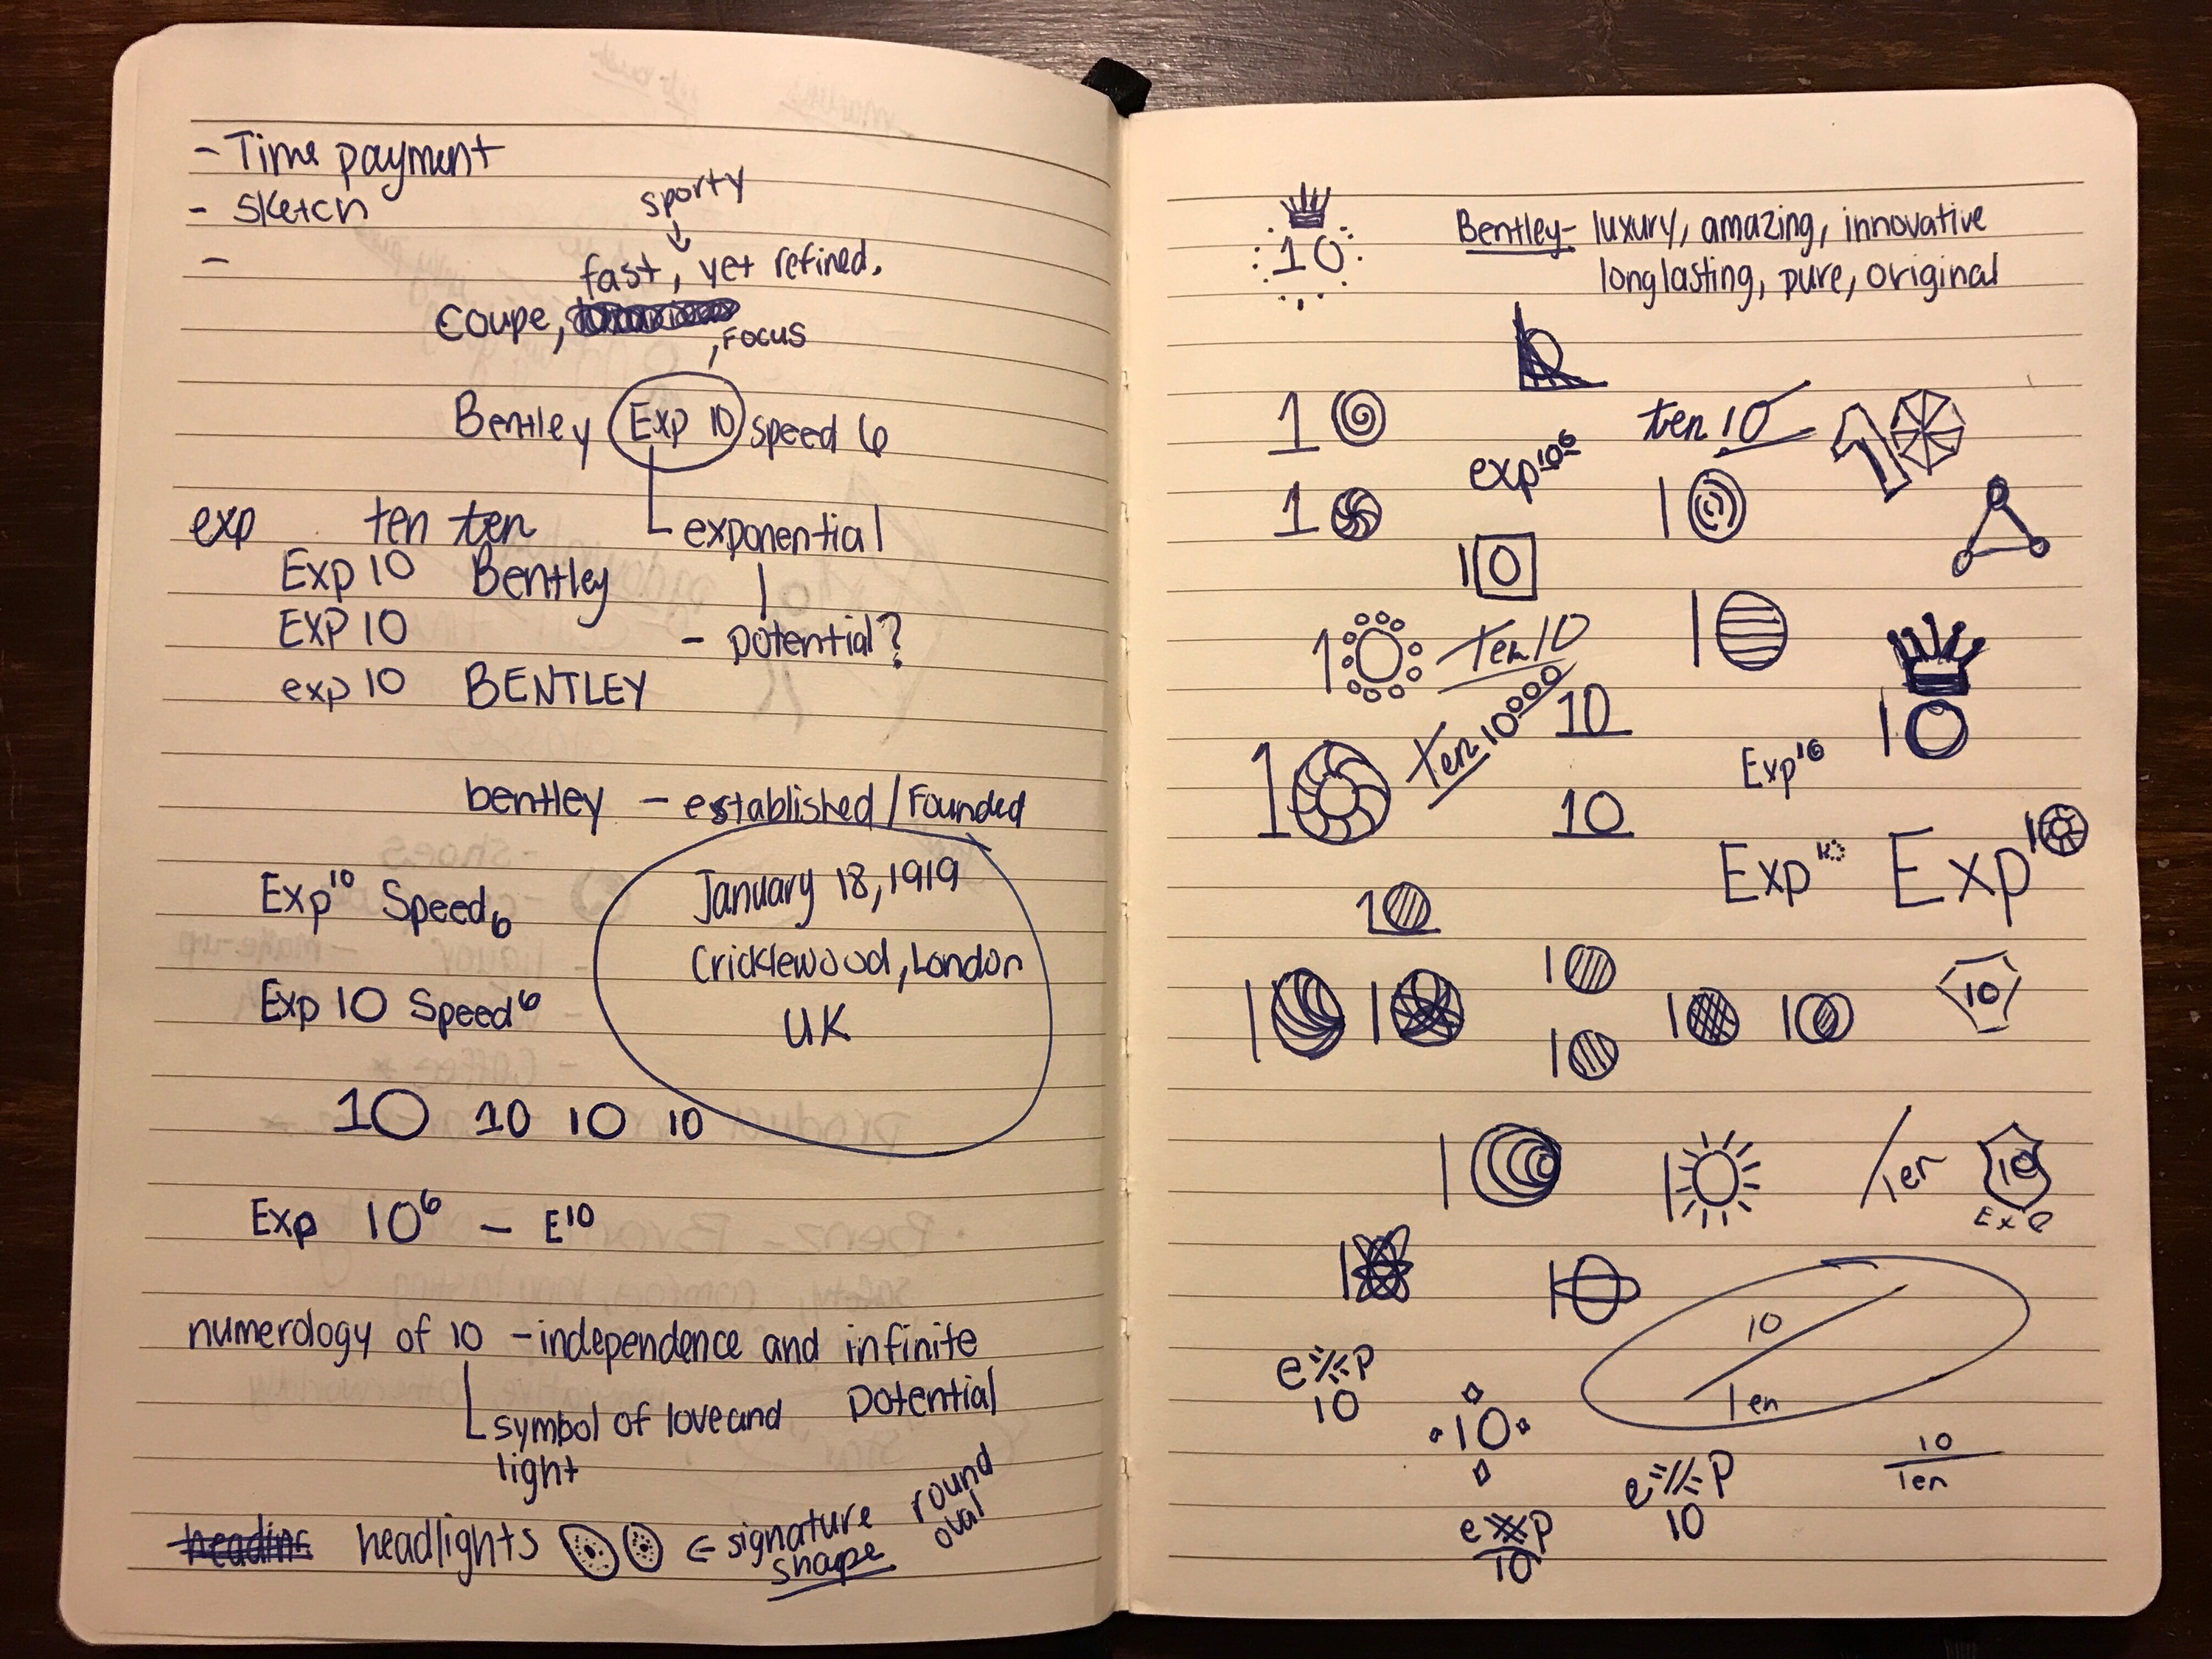 - Time payment
- sketch
-
sporty
fast, yet refined.
Coupe,
, Focus
Bentley Exp 10 speed 6
exp ten ten
exponential
Exp 10 Bentley
EXP 10
- potential?
exp 10 BENTLEY
bentley - established / Founded
January 18, 1919
Exp10 Speed6
Cricklewood, London
Exp 10 Speed6
UK
10 10 10 10
Exp 10⁶ - E¹⁰
numerology of 10 - independence and infinite
potential
symbol of love and
light
headlights ← signature
shape
round
oval
10
Bentley - luxury, amazing, innovative
longlasting, pure, original
10
ten 10
10
exp¹⁰⁶
10
10
10
10
Ten 10
10
10
Ten 10000
10
10
Exp¹⁰
10
Exp¹⁰
Exp¹⁰
10
10
10
10
10
10
10
10
10
10
Ten
10
Exp
10
10
10
Ten
exp
10
10
exp
10
10
Ten
exp
10